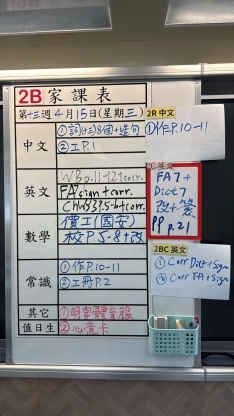 2B 家課表
第十三週 4月15日(星期三)
中文
①詞(十三)8個+造句
②工P.1
英文
WB p.11-12+corr.
FA1 sign+corr.
數學
價工(國安)
校P.5-8+改
常識
①作P.10-11
②工冊P.2
其它
①明穿體育服
值日生
②心意卡
2R 中文
①作P.10-11
2C 英文
FA7+
Dict7
改+簽
PP p.21
2BC 英文
① Corr Dict+Sign
② Corr FA1+Sign